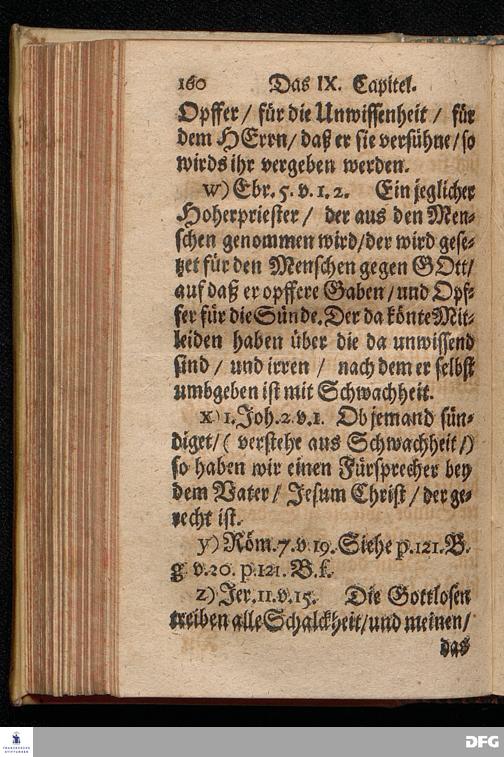 160 Das IX. Capitel.
Opffer / für die Unwissenheit / für
dem HErrn / daß er sie versühne / so
wirds ihr vergeben werden.
w) Ebr. 5. v. 1. 2. Ein jeglicher
Hoherpriester / der aus den Men-
schen genommen wird / der wird gese-
tzet für den Menschen gegen GOtt /
auf daß er opffere Gaben / und Opf-
fer für die Sünde. Der da könte Mit-
leiden haben über die da unwissend
sind / und irren / nach dem er selbst
umbgeben ist mit Schwachheit.
x) 1. Joh. 2. v. 1. Ob jemand sün-
diget / ( verstehe aus Schwachheit /)
so haben wir einen Fürsprecher bey
dem Vater / Jesum Christ / der ge-
recht ist.
y) Röm. 7. v. 19. Siehe p. 121. B.
g. v. 20. p. 121. B. f.
z) Jer. 11. v. 15. Die Gottlosen
treiben alle Schalckheit / und meinen /
das
FRANCKESCHE
STIFTUNGEN
DFG